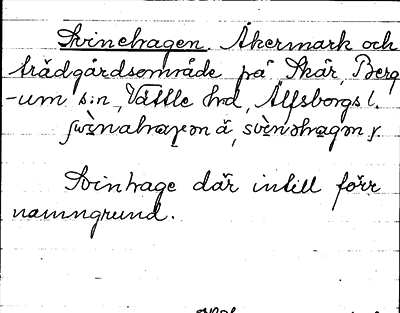 Svinehagen. Åkermark och
trädgårdsområde på Skår, Berg
-um s:n, Vättle hd, Älfsborgs l.
Svinhage där intill förr
namngrund.